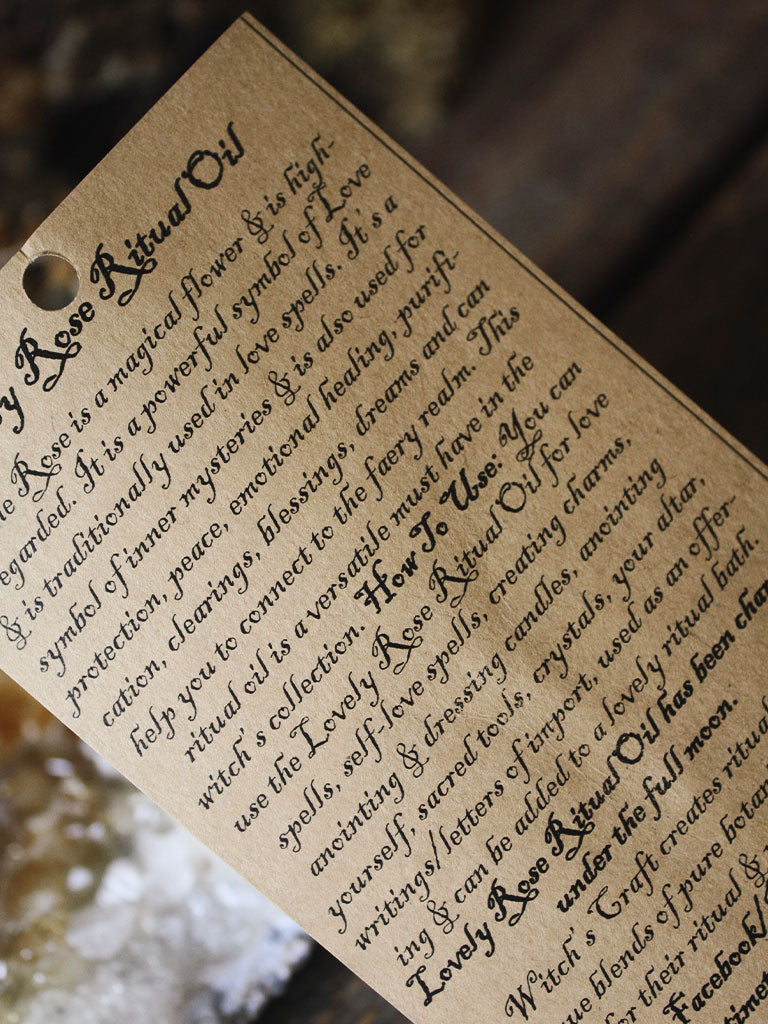 Rose Ritual Oil
Rose is a magical flower & is high-
egarded. It is a powerful symbol of Love
& is traditionally used in love spells. It's a
symbol of inner mysteries & is also used for
protection, peace, emotional healing, purifi-
cation, clearings, blessings, dreams and can
help you to connect to the faery realm. This
ritual oil is a versatile must have in the
witch's collection. How To Use: You can
use the Lovely Rose Ritual Oil for love
spells, self-love spells, creating charms,
anointing & dressing candles, anointing
yourself, sacred tools, crystals, your altar,
writings/letters of import, used as an offer-
ing & can be added to a lovely ritual bath.
Lovely Rose Ritual Oil has been char
under the full moon.
Witch's Craft creates ritual
que blends of pure botan
for their ritual &
Facebook/